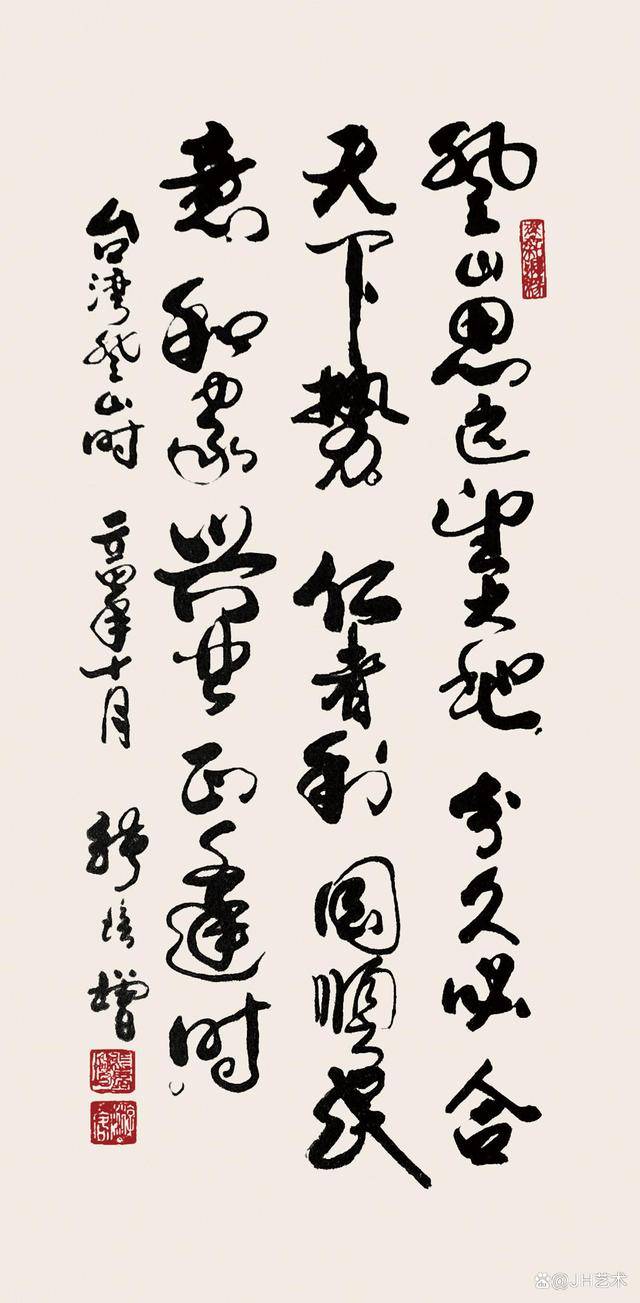 登山思远望大地 分久必合
天下势 仁者利国顺民
意 和家兴 正逢时
台湾登山时 四年十月 培增
@JH艺术